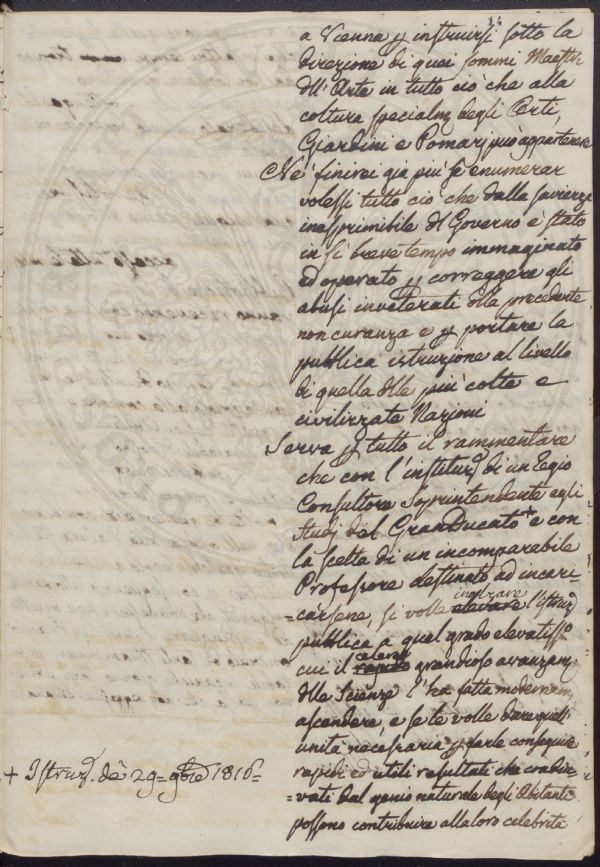 14
a Vienna p instruirsi sotto la
direzione di quei sommi Maestri
dll' Arte in tutto ciò che alla
coltura specialm degli Orti,
Giardini e Pomarj può appartenere
Nè finirei già più se enumerar
volessi tutto ciò che dalla saviezza
inesprimibile dl Governo è stato
in sì breve tempo immaginato
ed operato p correggere gli
abusi inveterati dlla precedente
non curanza e p portare la
pubblica istruzione al livello
di quella dlle più colte e
civilizzate Nazioni
Serva p tutto il rammentare
che con l'instituz di un Regio
Consultore Soprintendente egli
Studj del GranDucato + e con
la scelta di un incomparabile
Professore destinato ad incari-
=carsene, si volle elevare innalzare l'Istruz
pubblica a quel grado elevatisso
cui il rapido celere grandioso avanzam
dlle Scienze l'ha fatta modernam
ascendere, e se le volle dare quell'
unità necessaria p farle conseguire
rapidi ed utili resultati che coadiu-
=vati dal genio naturale degli Abitanti
possono contribuire alla loro celebrità
+ Istruz. de' 29= 9bre 1816=